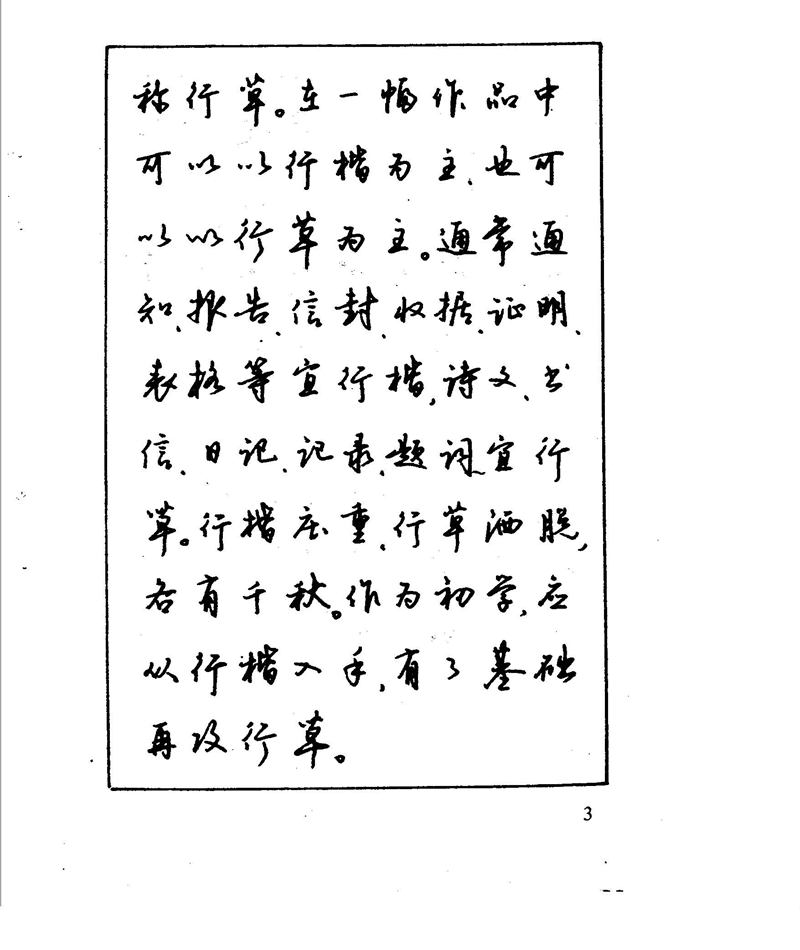 称行草。在一幅作品中
可以以行楷为主、也可
以以行草为主。通常通
知、报告、信封、收据、证明、
表格等宜行楷,诗文、书
信、日记、记录、题词、宜行
草。行楷庄重、行草洒脱,
各有千秋。作为初学,应
从行楷入手,有了基础
再攻行草。
3